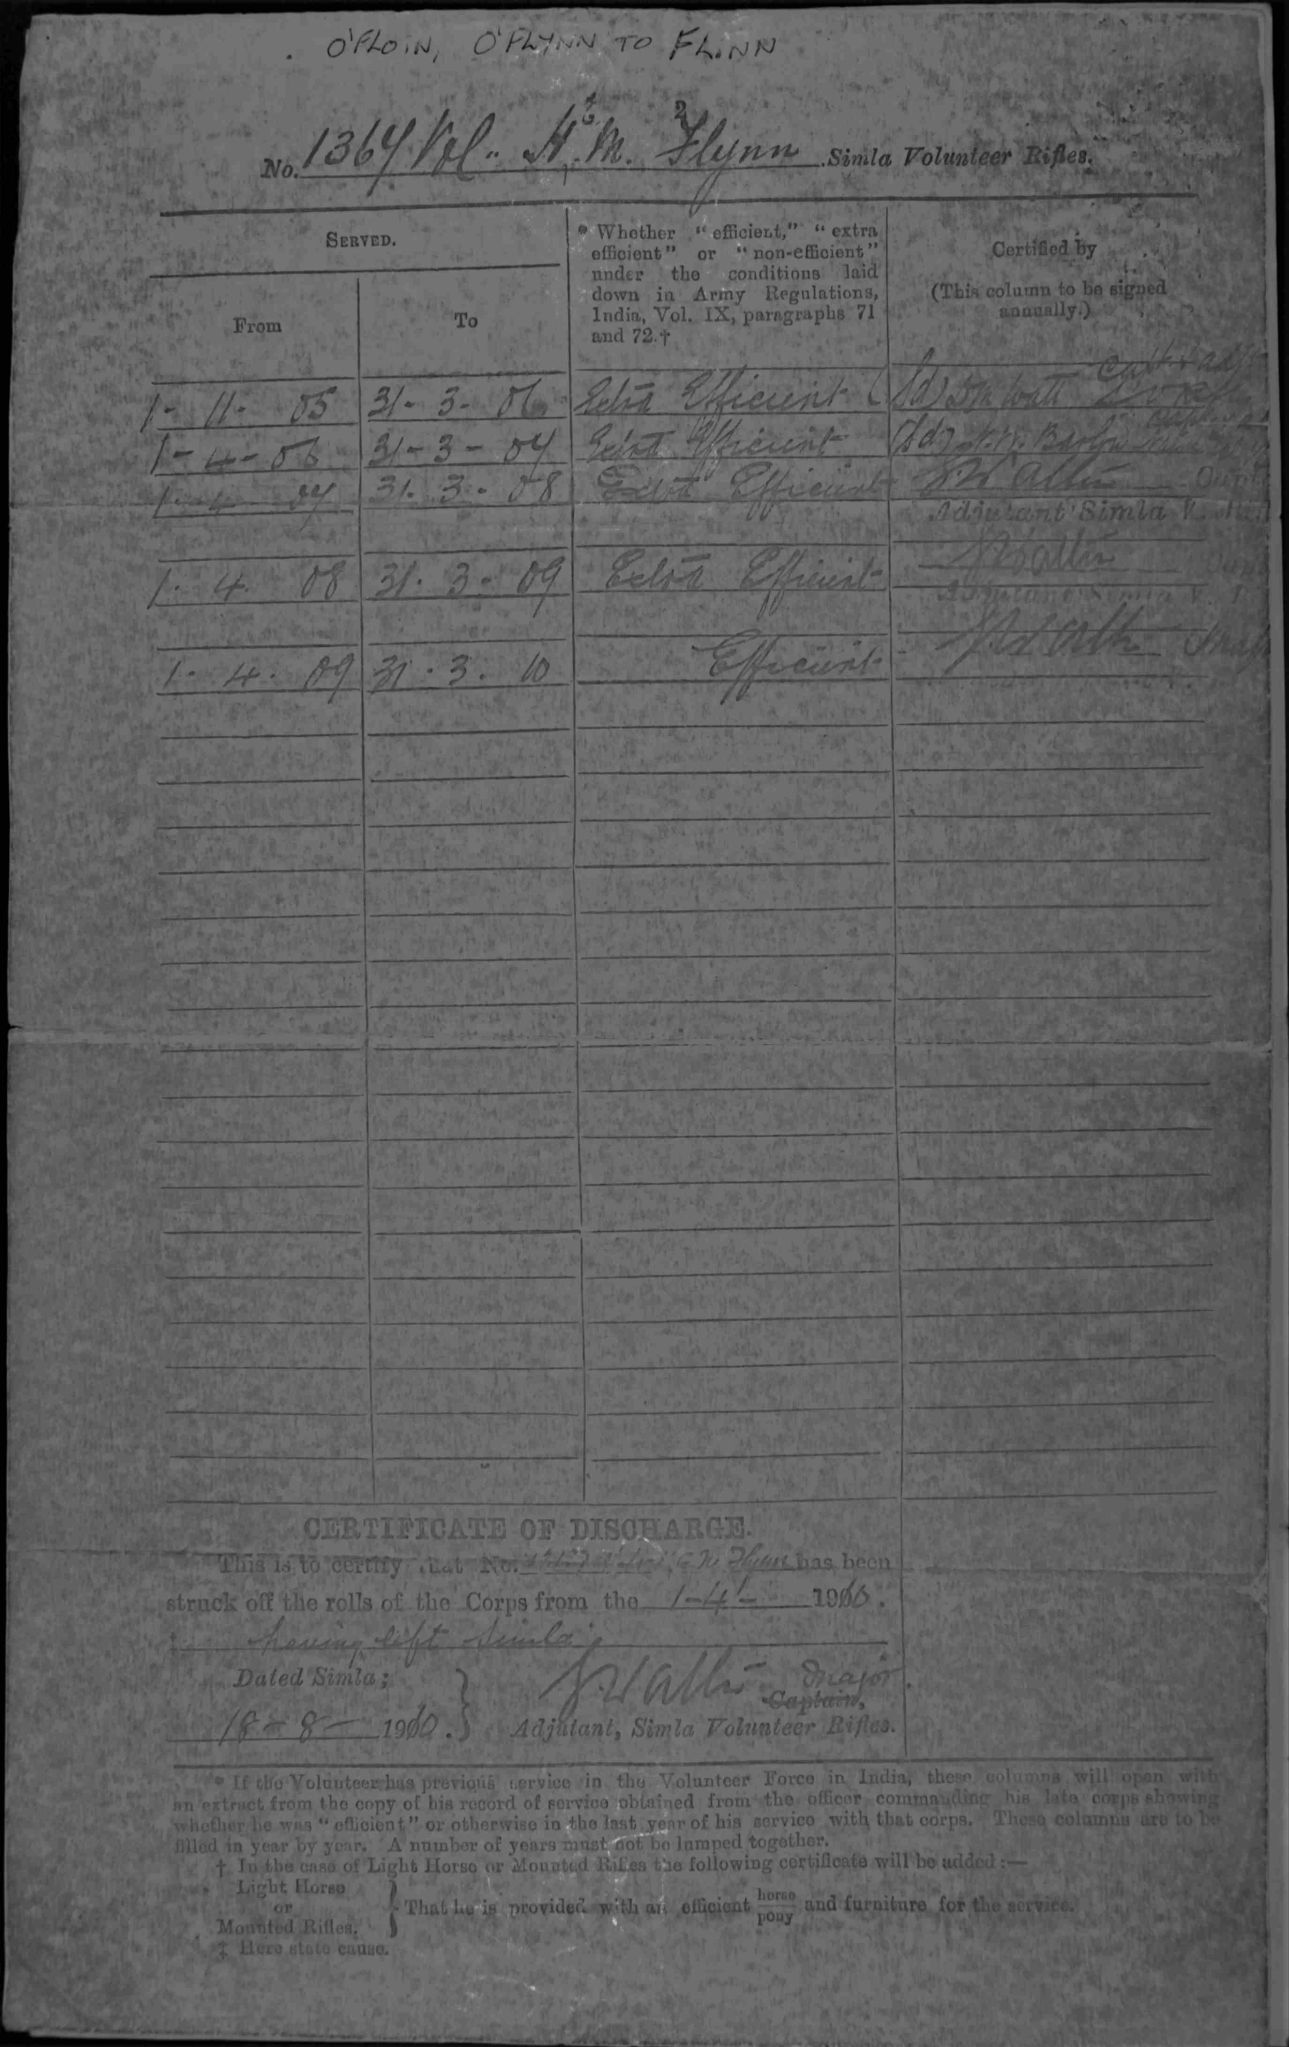 O'FLOIN, O'FLYNN TO FLINN
No. 1364 Vol. H. M. Flynn Simla Volunteer Rifles.
SERVED.
From
To
* Whether "efficient," "extra
efficient" or "non-efficient"
under the conditions laid
down in Army Regulations,
India, Vol. IX, paragraphs 71
and 72.†
Certified by
(This column to be signed
annually.)
1- 11- 05 31- 3- 06 Extra Efficient (Sd) Watt
1-4-06 31-3-07 Extra Efficient (Sd)
1-4 07 31. 3. 08 Extra Efficient
Adjutant Simla V.
1. 4. 08 31. 3. 09 Extra Efficient
Adjutant Simla V.
1. 4. 09 31. 3. 10 Efficient
CERTIFICATE OF DISCHARGE.
This is to certify that No. Flynn has been
struck off the rolls of the Corps from the 1-4- 1910.
‡ having left Simla
Dated Simla;
18-8- 1910.
Major
Captain,
Adjutant, Simla Volunteer Rifles.
* If the Volunteer has previous service in the Volunteer Force in India, these columns will open with
an extract from the copy of his record of service obtained from the officer commanding his late corps showing
whether he was "efficient" or otherwise in the last year of his service with that corps. These columns are to be
filled in year by year. A number of years must not be lumped together.
† In the case of Light Horse or Mounted Rifles the following certificate will be added:—
Light Horse
or
Mounted Rifles.
That he is provided with an efficient horse
pony and furniture for the service.
‡ Here state cause.